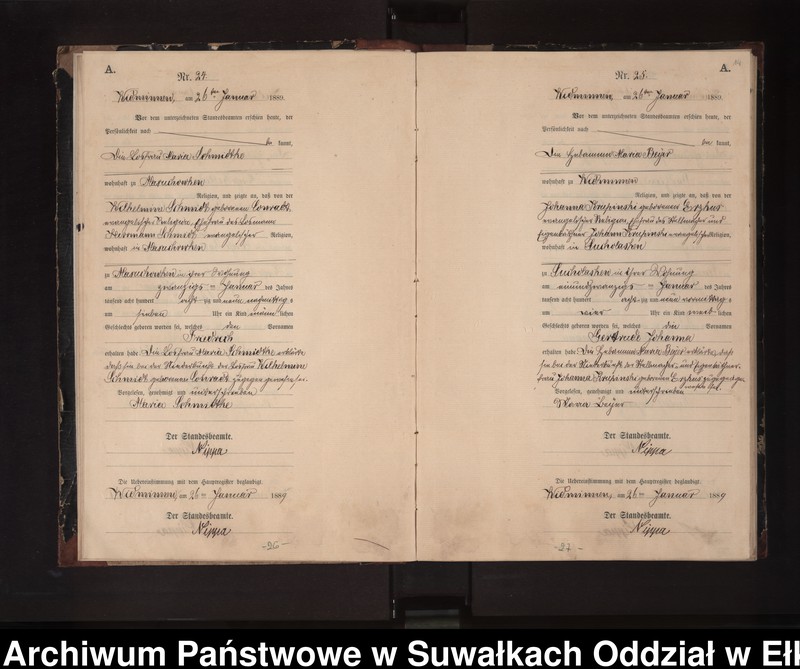 A.
Nr. 24.
Widminnen, am 26ten Januar 1889.
Vor dem unterzeichneten Standesbeamten erschien heute, der
Persönlichkeit nach
be kannt,
Die Losfrau Maria Schmidtke
wohnhaft zu Maruchowken
Religion, und zeigte an, daß von der
Wilhelmine Schmidt geborenen Conradt,
evangelischer Religion, Ehefrau des Losmann
Hermann Schmidt, evangelischer Religion,
wohnhaft in Maruchowken
zu Maruchowken in ihrer Wohnung
am Januar des Jahres
tausend acht hundert acht zig und neun nachmittag s
um sieben Uhr ein Kind männ lichen
Geschlechts geboren worden sei, welches den Vornamen
Friedrich
erhalten habe. Die Losfrau Maria Schmidtke erklärte,
daß sie bei der Niederkunft der Losfrau Wilhelmine
Schmidt geborenen Conradt zugegen gewesen sei.
Vorgelesen, genehmigt und unterschrieben
Maria Schmidtke
Der Standesbeamte.
Nippa
Die Uebereinstimmung mit dem Hauptregister beglaubigt.
Widminnen, am 26ten Januar 1889
Der Standesbeamte.
Nippa
-26-
A.
Nr. 25.
Widminnen, am 26ten Januar 1889.
Vor dem unterzeichneten Standesbeamten erschien heute, der
Persönlichkeit nach
be kannt,
Die Hebamme Maria Beyer
wohnhaft zu Widminnen
Religion, und zeigte an, daß von der
Johanna Krupinski geborenen
evangelischer Religion, Ehefrau des Stellmacher und
Eigenkäthner Johann Krupinski evangelischer Religion,
wohnhaft in Sucholasken
zu Sucholasken in ihrer Wohnung
am Januar des Jahres
tausend acht hundert acht zig und neun vormittag s
um vier Uhr ein Kind weib lichen
Geschlechts geboren worden sei, welches die Vornamen
Gertrude Johanna
erhalten habe. Die Hebamme Maria Beyer erklärte, daß
sie bei der Niederkunft der Stellmacher- und Eigenkäthner-
frau Johanna Krupinski geborenen zugegen
gewesen sei.
Vorgelesen, genehmigt und unterschrieben
Maria Beyer
Der Standesbeamte.
Nippa
Die Uebereinstimmung mit dem Hauptregister beglaubigt.
Widminnen, am 26ten Januar 1889
Der Standesbeamte.
Nippa
-27-
Archiwum Państwowe w Suwałkach Oddział w Ełk